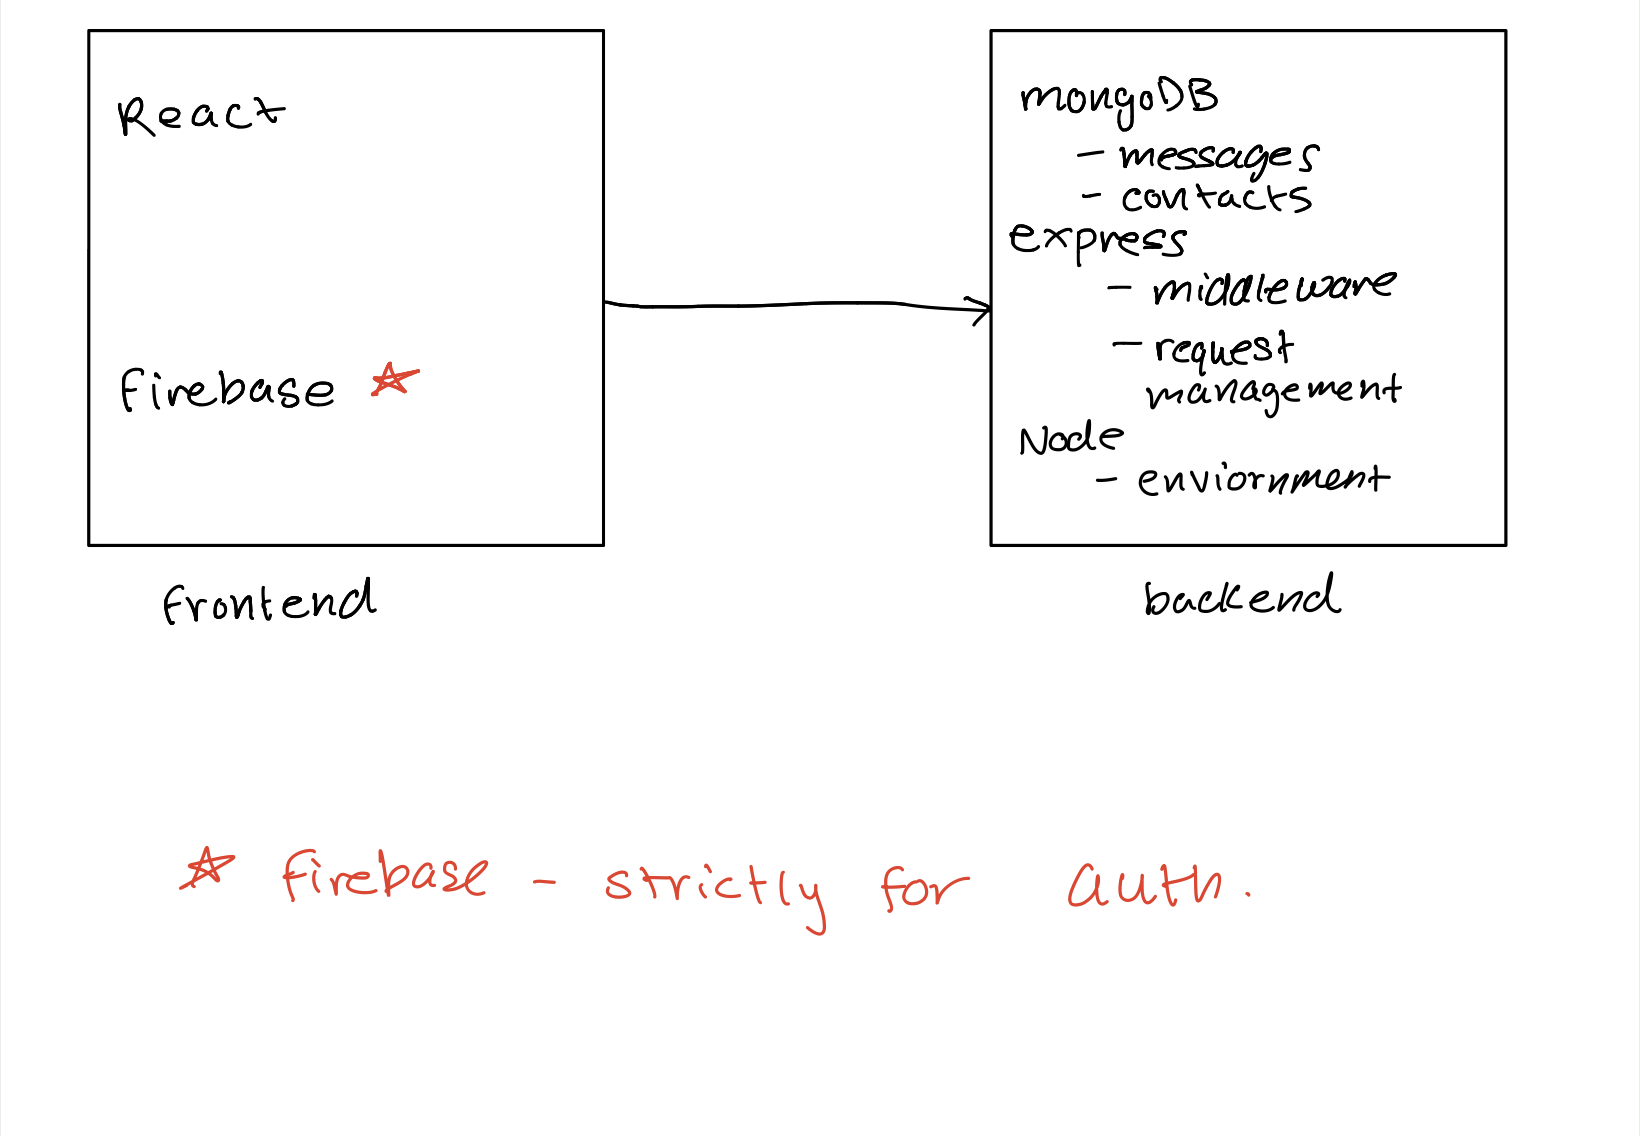 React
firebase ☆
frontend
mongoDB
- messages
- contacts
express
- middleware
- request
management
Node
- enviornment
backend
☆ firebase - strictly for auth.